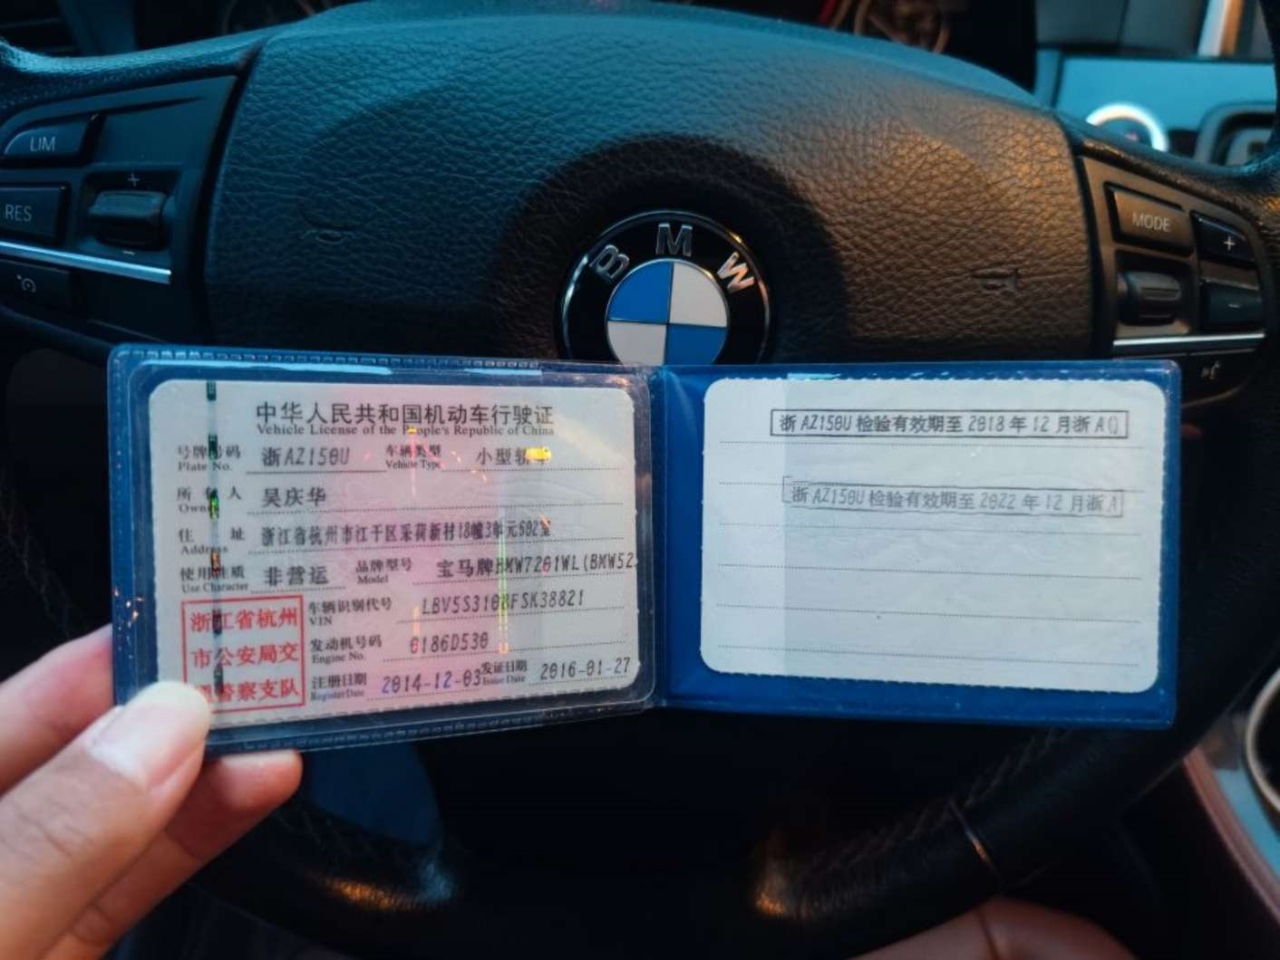 LIM
RES
+
−
MODE
+
−
BMW
中华人民共和国机动车行驶证
Vehicle License of the People's Republic of China
号牌号码 浙AZ150U 车辆类型 小型轿车
Plate No. Vehicle Type
所有人 吴庆华
Owner
住址 浙江省杭州市江干区采荷新村18幢3单元502室
Address
使用性质 非营运 品牌型号 宝马牌BMW7201WL(BMW52
Use Character Model
浙江省杭州
市公安局交
警察支队
车辆识别代号 LBV5S3108FSK38821
VIN
发动机号码 0186D530
Engine No.
注册日期 2014-12-03 发证日期 2016-01-27
Register Date Issue Date
浙AZ150U检验有效期至2018年12月浙A
浙AZ150U检验有效期至2022年12月浙A